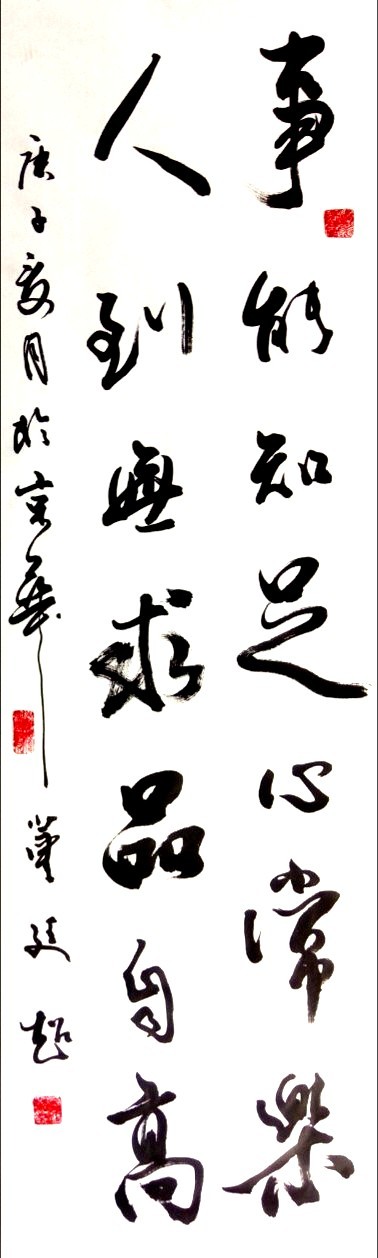 事能知足心常樂
人到無求品自高
庚子夏月於京華 董廷超